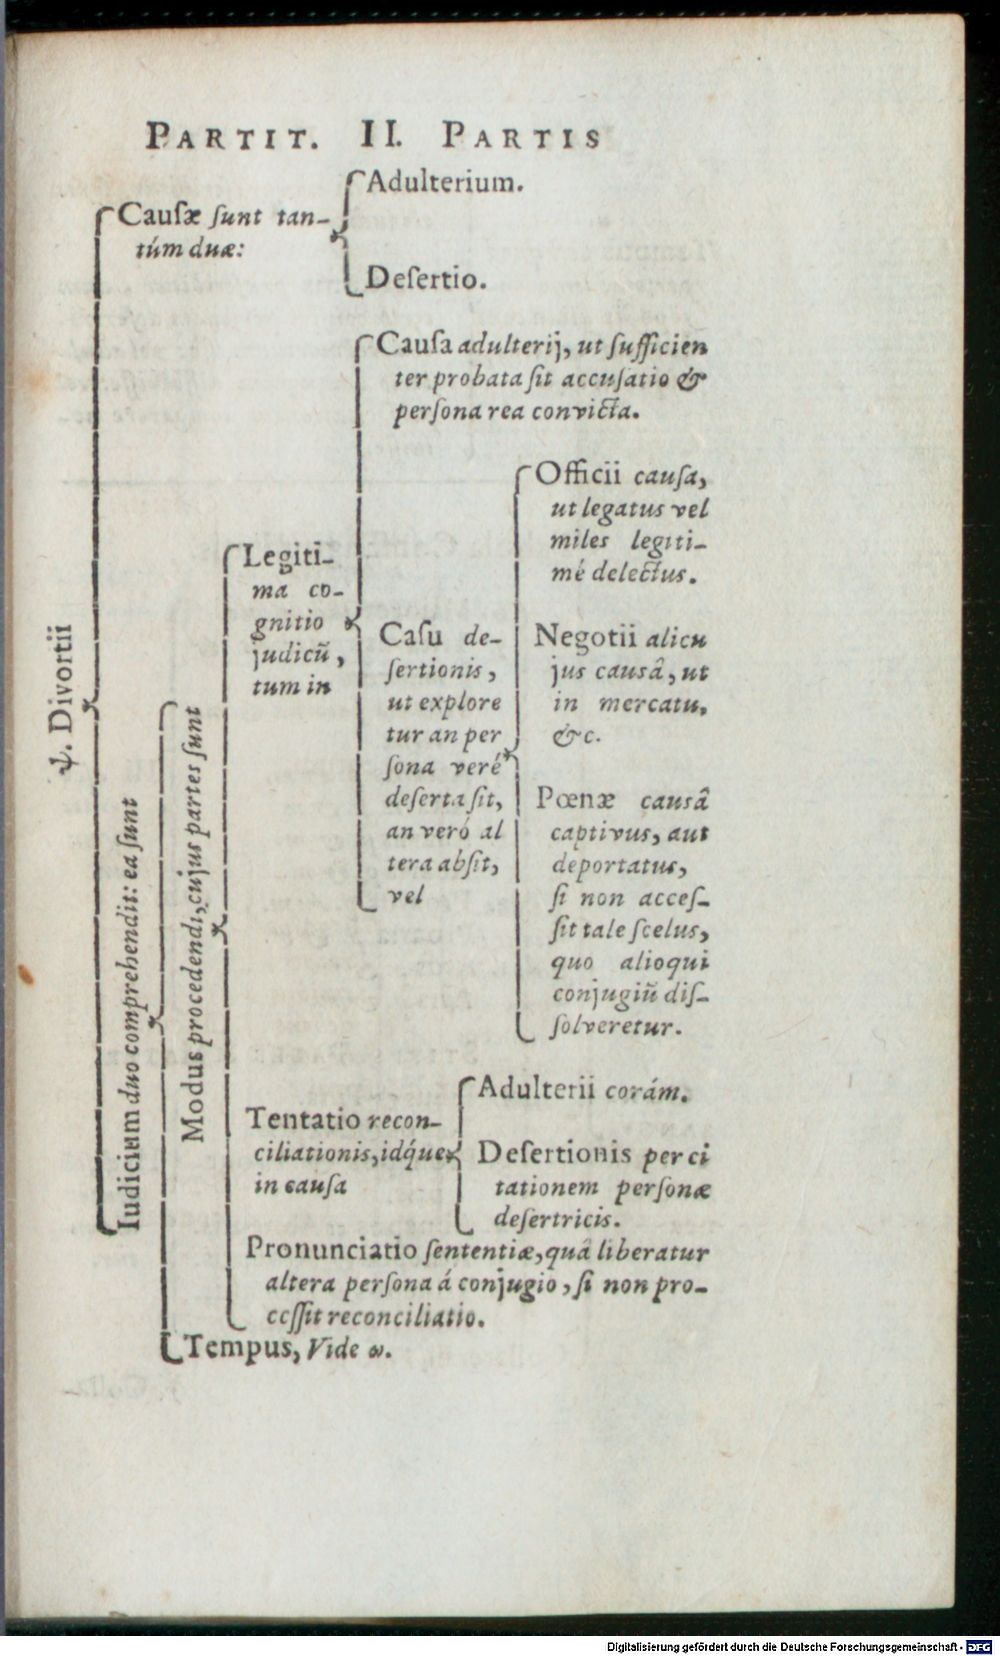 PARTIT. II. PARTIS
ψ. Divortii
Causæ sunt tan-
túm duæ:
Adulterium.
Desertio.
Iudicium duo comprehendit: ea sunt
Modus procedendi, cujus partes sunt
Legiti-
ma co-
gnitio
judicū,
tum in
Causa adulterij, ut sufficien
ter probata sit accusatio &
persona rea convicta.
Casu de-
sertionis,
ut explore
tur an per
sona veré
deserta sit,
an veró al
tera absit,
vel
Officii causa,
ut legatus vel
miles legiti-
mé delectus.
Negotii alicu
jus causâ, ut
in mercatu,
&c.
Pœnæ causâ
captivus, aut
deportatus,
si non acces-
sit tale scelus,
quo alioqui
conjugiū dis-
solveretur.
Tentatio recon-
ciliationis, idq́ue
in causa
Adulterii corám.
Desertionis per ci
tationem personæ
desertricis.
Pronunciatio sententiæ, quâ liberatur
altera persona á conjugio, si non pro-
cessit reconciliatio.
Tempus, Vide ω.
Digitalisierung gefördert durch die Deutsche Forschungsgemeinschaft - DFG